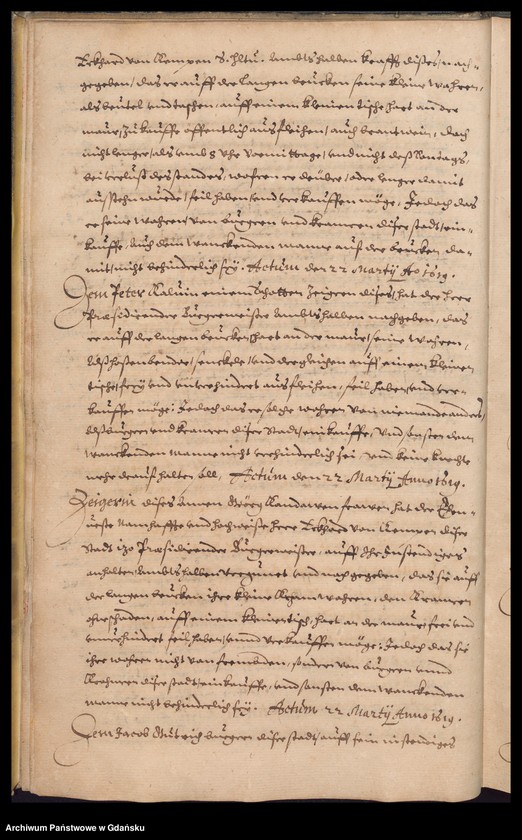 Eckhard von Kempen S. hltn. Ambtshalben krafft dißes, nach-
gegeben, das er auff der langen brucken seine kleine wahren,
als beutel und taschen, auff einem kleinen tische hart an der
maur, zu kauffe offentlich ausfleihen, auch brantwein, doch
nicht lenger, als umb 8 uhr vormittage, und nicht deß Sontags,
bei verlust des standes, wofern er drüber, oder lenger damit
ausstehn würde, feil haben, und verkauffen möge, Jedoch das
er seine wahren, von bürgern und kramern diser stadt, ein-
kauffe, auch dem wanckenden manne auf der brucken, da-
mit, nicht behinderlich sey. Actum den 22 Martij Ao 1619.
Dem Peter Kaluin einem Schotten Zeigern dises, hat der Herr
Præsidirender Bürgermeister Ambtshalben nachgeben, das
er auff der langen brucken, hart an der maur, seine wahren,
alß hosenbender, senckele, und dergleichen auff einem kleinen
tische, frey und unverhindert ausfleihen, feil haben, und ver-
kauffen möge, Jedoch das er solche wahren von niemande anders,
alß bürgern und kramern diser Stadt, einkauffe, Und sonsten dem
wanckenden manne nicht verhinderlich sei, und keine knechte
mehr drauf halten soll, Actum den 22 Martij Anno 1619.
Zeigerin dises Annen Görg Randauen frawen, hat der Ehrn-
veste Namhaffte und hochweise Herr Eckhard von Kempen diser
Stadt izo Præsidirender Bürgermeister, auff Ihr instendiges
anhalten, Ambtshalben vergünnet und nach gegeben, das sie auff
der langen brucken ihre kleine wahren, den kramern
ohn schaden, auff einem kleinen tisch, hart an der maur, frei und
unverhindert feil haben, unnd verkauffen möge, Jedoch das sie
ihre wahren nicht von frembden, sondern von bürgern unnd
Krahmern diser stadt, einkauffe, und sonsten dem wanckenden
manne nicht behinderlich sey. Actum 22 Martij Anno 1619.
Dem Jacob bürgern diser stadt, auff sein instendiges
Archiwum Państwowe w Gdańsku